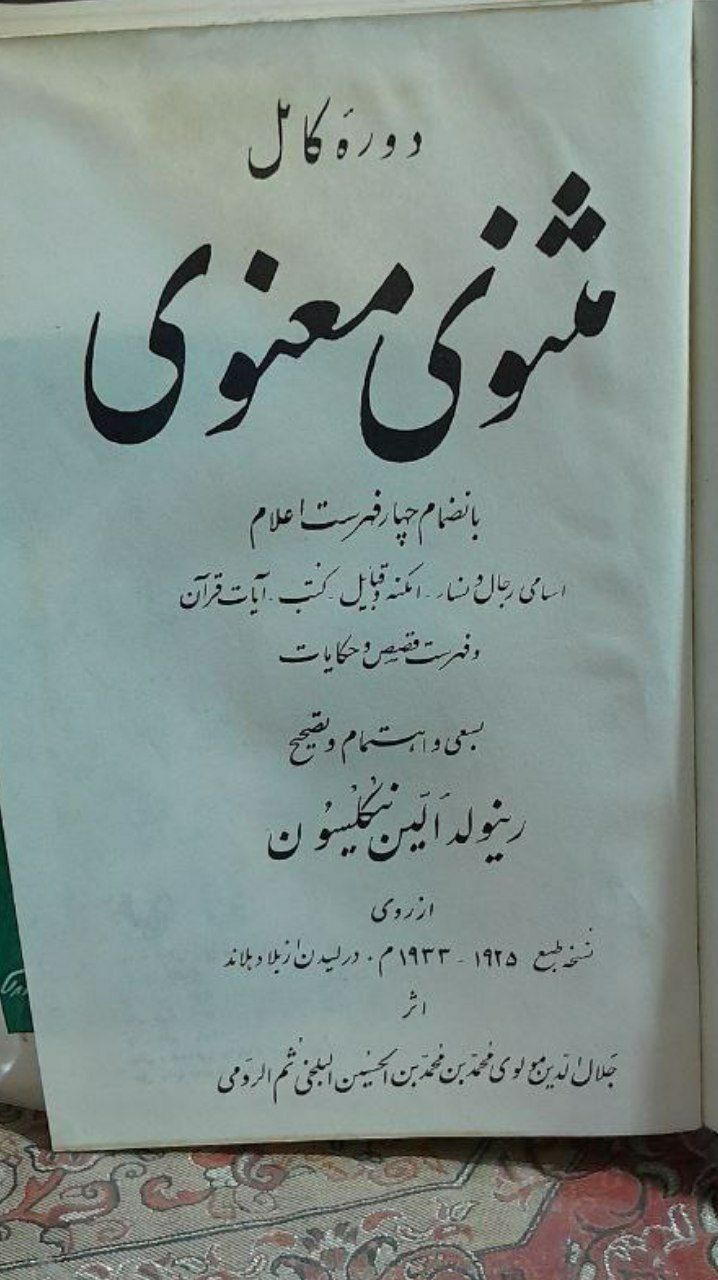 دورهٔ کامل
مثنوی معنوی
بانضمام چهار فهرست اعلام
اسامی رجال و نساء - امکنه و قبایل - کتب - آیات قرآن
و فهرست قصص و حکایات
بسعی و اهتمام و تصحیح
رینولد اَلّین نیکُلیسُون
از روی
نسخه طبع ۱۹۲۵ - ۱۹۳۳ م . در لیدن از بلاد هلاند
اثر
جَلال الدّین مولوی مُحمّد بن مُحمّد بن الحُسَین البلخی ثُم الرّومی